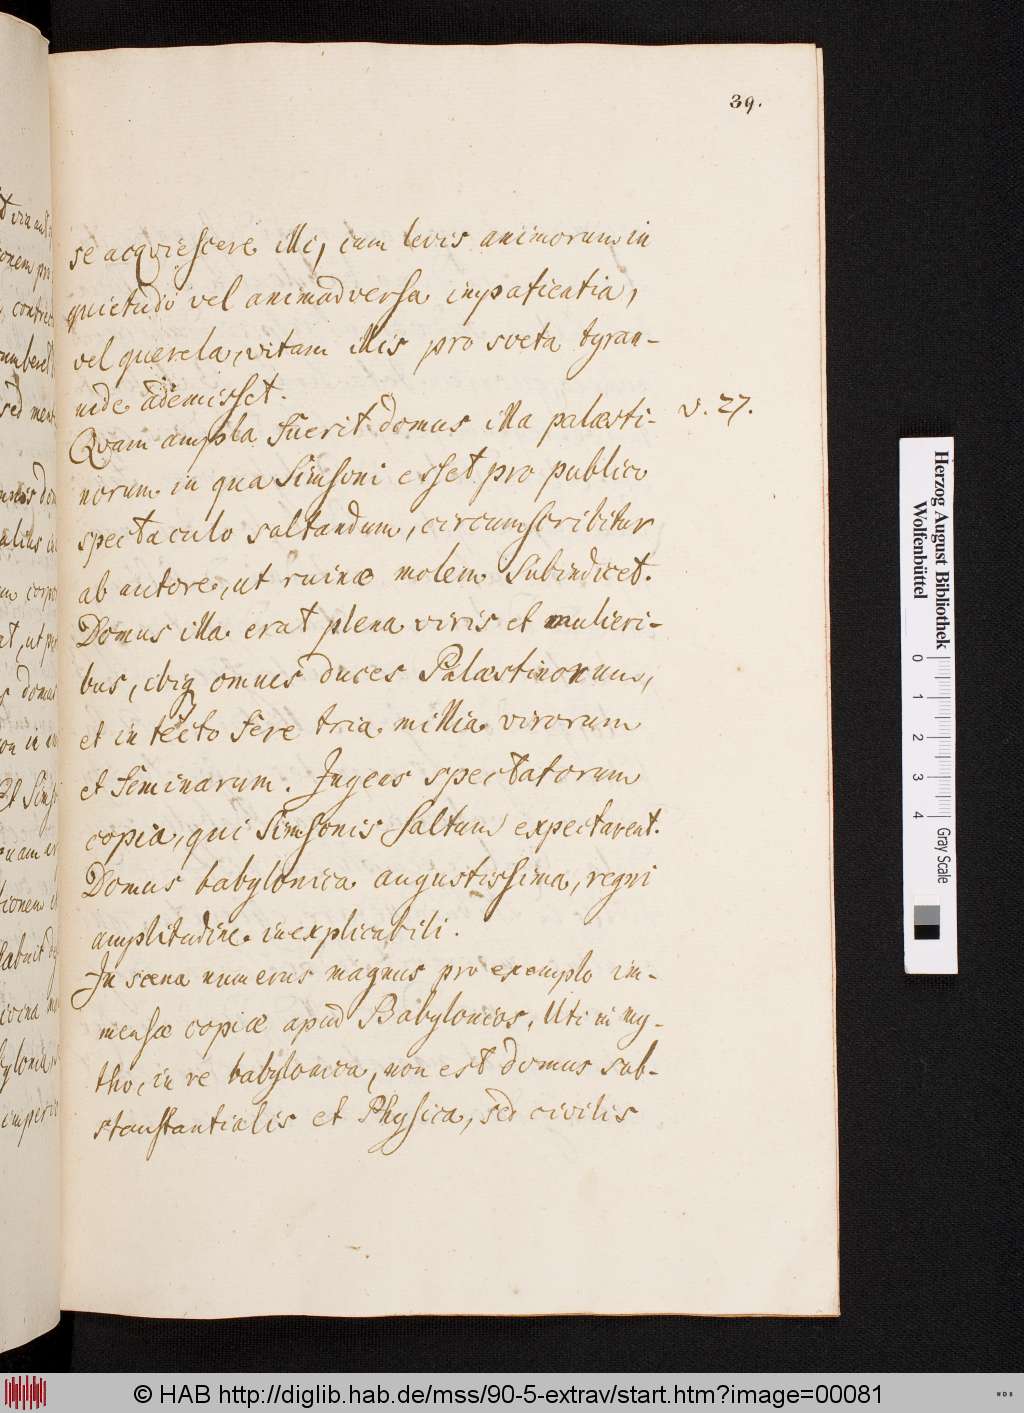 39.
se acquiescere illi, cum levis animorum in
quietudo vel animadversa impatientia,
vel querela, vitam illis pro sveta tyran-
nide ademisset.
Qvam ampla fuerit domus illa palæsti-
v. 27.
norum in qua Simsoni esset pro publico
spectaculo saltandum, circumscribitur
ab autore, ut ruinæ molem subindicet.
Domus illa erat plena viris et mulieri-
bus, ibiq omnes duces Palæstinorum,
et in tecto fere tria millia virorum
et feminarum. Ingens spectatorum
copia, qui Simsonis saltum expectarent.
Domus babylonica augustissima, regni
amplitudine inexplicabili.
In scena numerus magnus pro exemplo im-
mensæ copiæ apud Babylonios, Uti in my-
tho, in re babylonica, non est domus sub-
stanstantialis et Physica, sed civilis
Herzog August Bibliothek
Wolfenbüttel
0 1 2 3 4
Gray Scale
© HAB http://diglib.hab.de/mss/90-5-extrav/start.htm?image=00081